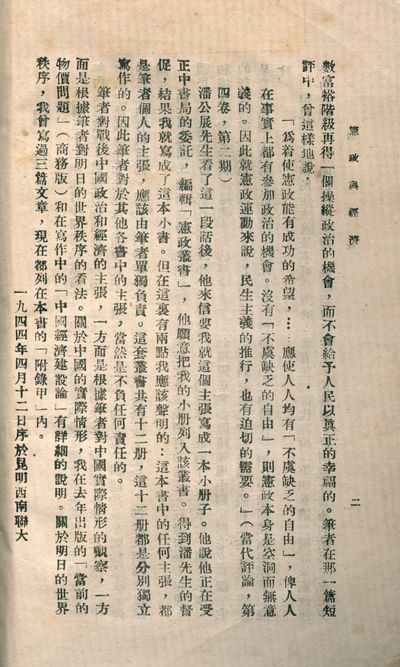 憲政與經濟
二
數富裕階級再得一個操縱政治的機會，而不會給予人民以眞正的幸福的。筆者在那一篇短
評中，曾這樣地說：
「爲着使憲政能有成功的希望，… 應使人人均有「不虞缺乏的自由」，俾人人
在事實上都有參加政治的機會。沒有「不虞缺乏的自由」，則憲政本身是空洞而無意
義的。因此就憲政運動來說，民生主義的推行，也有迫切的需要。」（當代評論，第
四卷，第二期）
潘公展先生看了這一段話後，他來信要我就這個主張寫成一本小册子。他說他正在受
正中書局的委託，編輯「憲政叢書」，他願意把我的小册列入該叢書。得到潘先生的督
促，結果我就寫成了這本小書。但在這裏有兩點我應該聲明的：這本書中的任何主張，都
是筆者個人的主張，應該由筆者單獨負責。這套叢書共有十二册，這十二册都是分別獨立
寫作的。因此筆者對於其他各書中的主張，當然是不負任何責任的。
筆者對戰後中國政治和經濟的主張，一方面是根據筆者對中國實際情形的觀察，一方
面是根據筆者對明日的世界秩序的看法。關於中國的實際情形，我在去年出版的「當前的
物價問題」（商務版）和在寫作中的「中國經濟建設論」有詳細的說明。關於明日的世界
秩序，我曾寫過三篇文章，現在都列在本書的「附錄甲」內。
一九四四年四月十二日序於昆明西南聯大